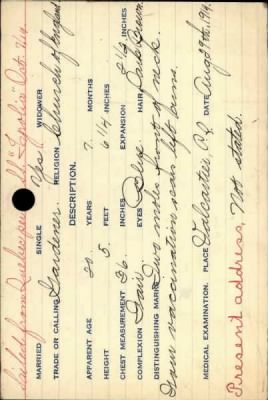 Sailed from Quebec per S.S. "Tyrolia" Oct. 7/14
MARRIED SINGLE Yes WIDOWER
TRADE OR CALLING Gardener. RELIGION Church of England
DESCRIPTION.
APPARENT AGE 20 YEARS 7 MONTHS
HEIGHT 5 FEET 6 1/4 INCHES
CHEST MEASUREMENT 36 INCHES EXPANSION 2 1/2 INCHES
COMPLEXION Fair EYES Blue HAIR Dark Brown
DISTINGUISHING MARKS Two moles front of neck.
Four vaccination scars left arm.
MEDICAL EXAMINATION. PLACE Valcartier P.Q. DATE Aug 29th 1914.
Present address, Not stated.